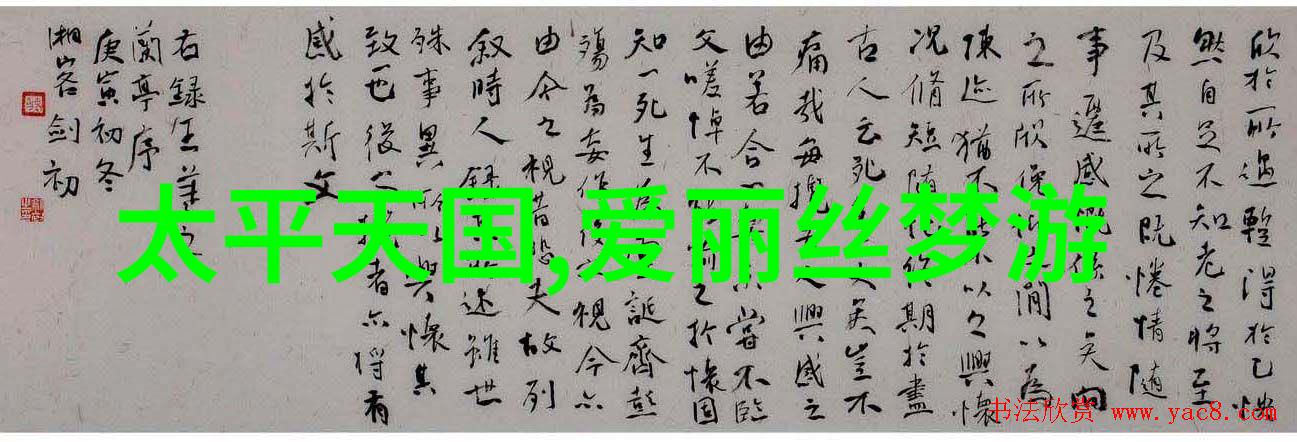 欣於所遇暫得於己
然自足不知老之將至
及其所之既惓情隨
事遷感慨係之矣向
之所欣俛仰之間以為
陳迹猶不能不以之興懷
况脩短隨化終期於盡
古人云死生亦大矣豈不
痛哉每攬昔人興感之
由若合一嘗不臨
文嗟悼不能喻之於懷固
知一死生為誕齊彭
殤為妄作後之視今亦
由今之視昔悲夫故列
叙時人錄其所述雖世
殊事異所以興懷其
致一也後之者亦將有
感於斯文
右錄王羲之
蘭亭序
庚寅初冬
劍初
太平天国,爱丽丝梦游
书法欣赏 www.yac8.com